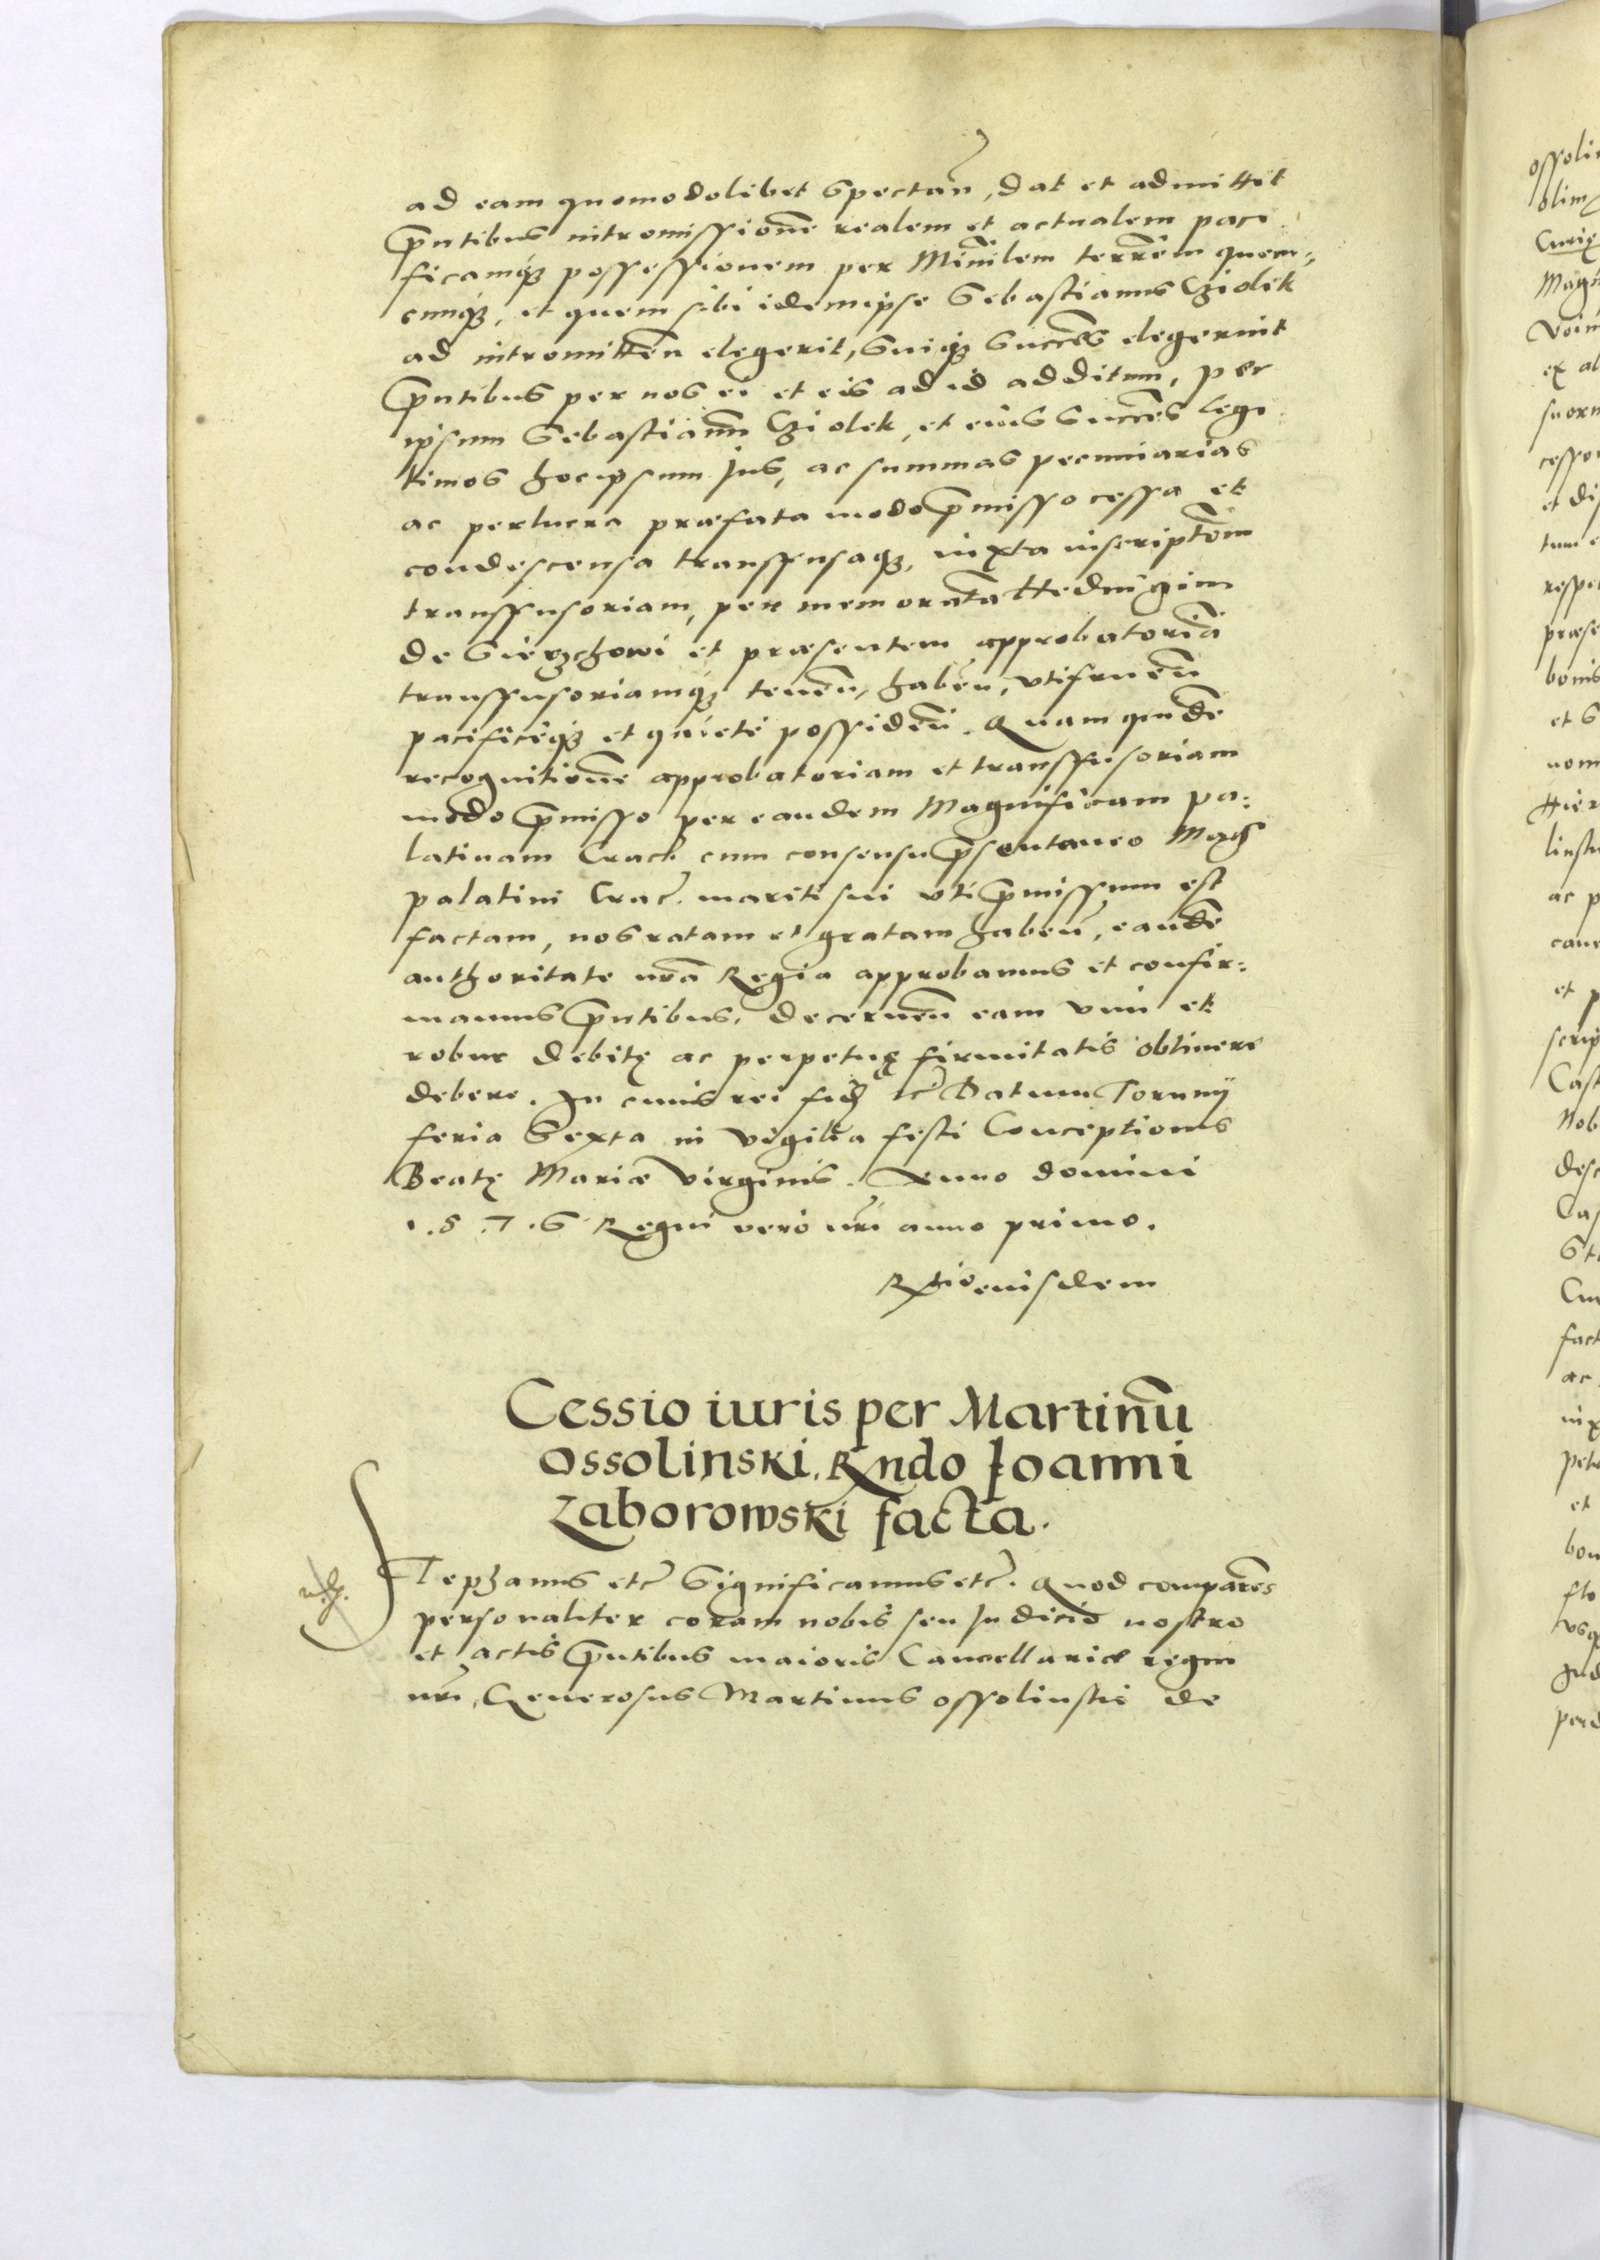 ad eam quomodolibet spectan̄, dat et admittit
pn̄tibus intromissionē realem et actualem paci
ficamq́ꝫ possessionem per Minīlem terrēm quem¬
cunqꝫ, et quem sibi idem ipse Sebastianus Cziolek
ad intromitten̄ elegerit, suiqꝫ succēs elegerint
pn̄tibus per nos ei et eis ad id additum, per
ipsum Sebastianū Cziolek, et eius succēs legi
timos hoc ipsum jus, ac summas pecuniarias
ac perlucra præfata modo pmisso cessa et
condescensa transfusaqꝫ, iuxta inscriptōm
transfusoriam, per memoratā Heduigim
de Sierzchowi et præsentem approbatoriā
transfusoriamq́ꝫ tenen̄, haben̄, vtifruen̄
pacificeq́ꝫ et quiete possiden̄. Quam quidē
recognitionē approbatoriam et transfusoriam
modo pmisso per eandem Magnificam pa:
latinam Crac̄. cum consensu psentaneo Magci
palatini Crac̄. mariti sui vti pmissum est
factam, nos ratam et gratam haben̄, eandē
authoritate nrā Regia approbamus et confir:
mamus pn̄tibus, decernen̄ eam vim et
robur debitę ac perpetuę firmitatis obtinere
debere. In cuius rei fidē etc̄ Datum Torunij
feria Sexta in vigilia festi Conceptionis
Beatę Mariæ virginis. Anno domini
1.5.7.6 Regni vero nrī anno primo.
Rltio eiusdem
Cessio iuris per Martinū
Ossolinski, Rndo Joanni
Zaborowski facta.
Stephanus etc̄ Significamus etc̄. Quod comparēs
personaliter coram nobis seu Judicio nostro
et actis pn̄tibus maioris Cancellariæ regni
nrī, Generosus Martinus Ossolinski de